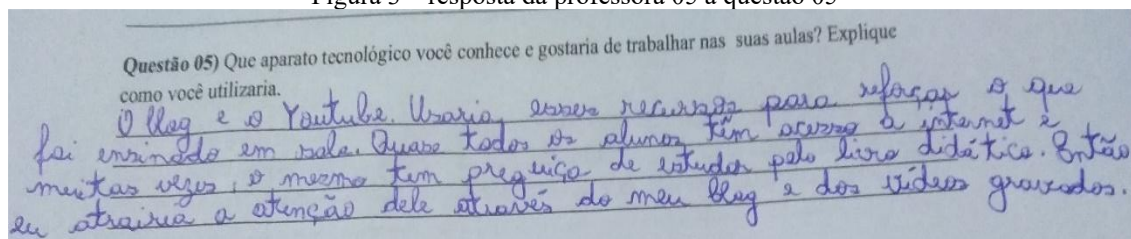 Figura 3 – resposta da professora 05 à questão 05
Questão 05) Que aparato tecnológico você conhece e gostaria de trabalhar nas suas aulas? Explique
como você utilizaria.
O Blog e o Youtube. Usaria esses recursos para reforçar o que
foi ensinado em sala. Quase todos os alunos têm acesso a internet e
muitas vezes, o mesmo tem preguiça de estudar pelo livro didático. Então
eu atrairia a atenção dele através do meu blog e dos vídeos gravados.